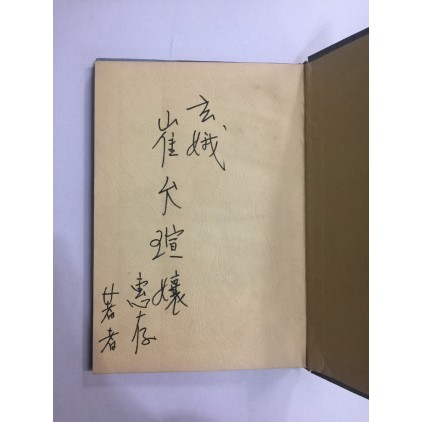 玄娥
崔允瑄孃
惠存
著者